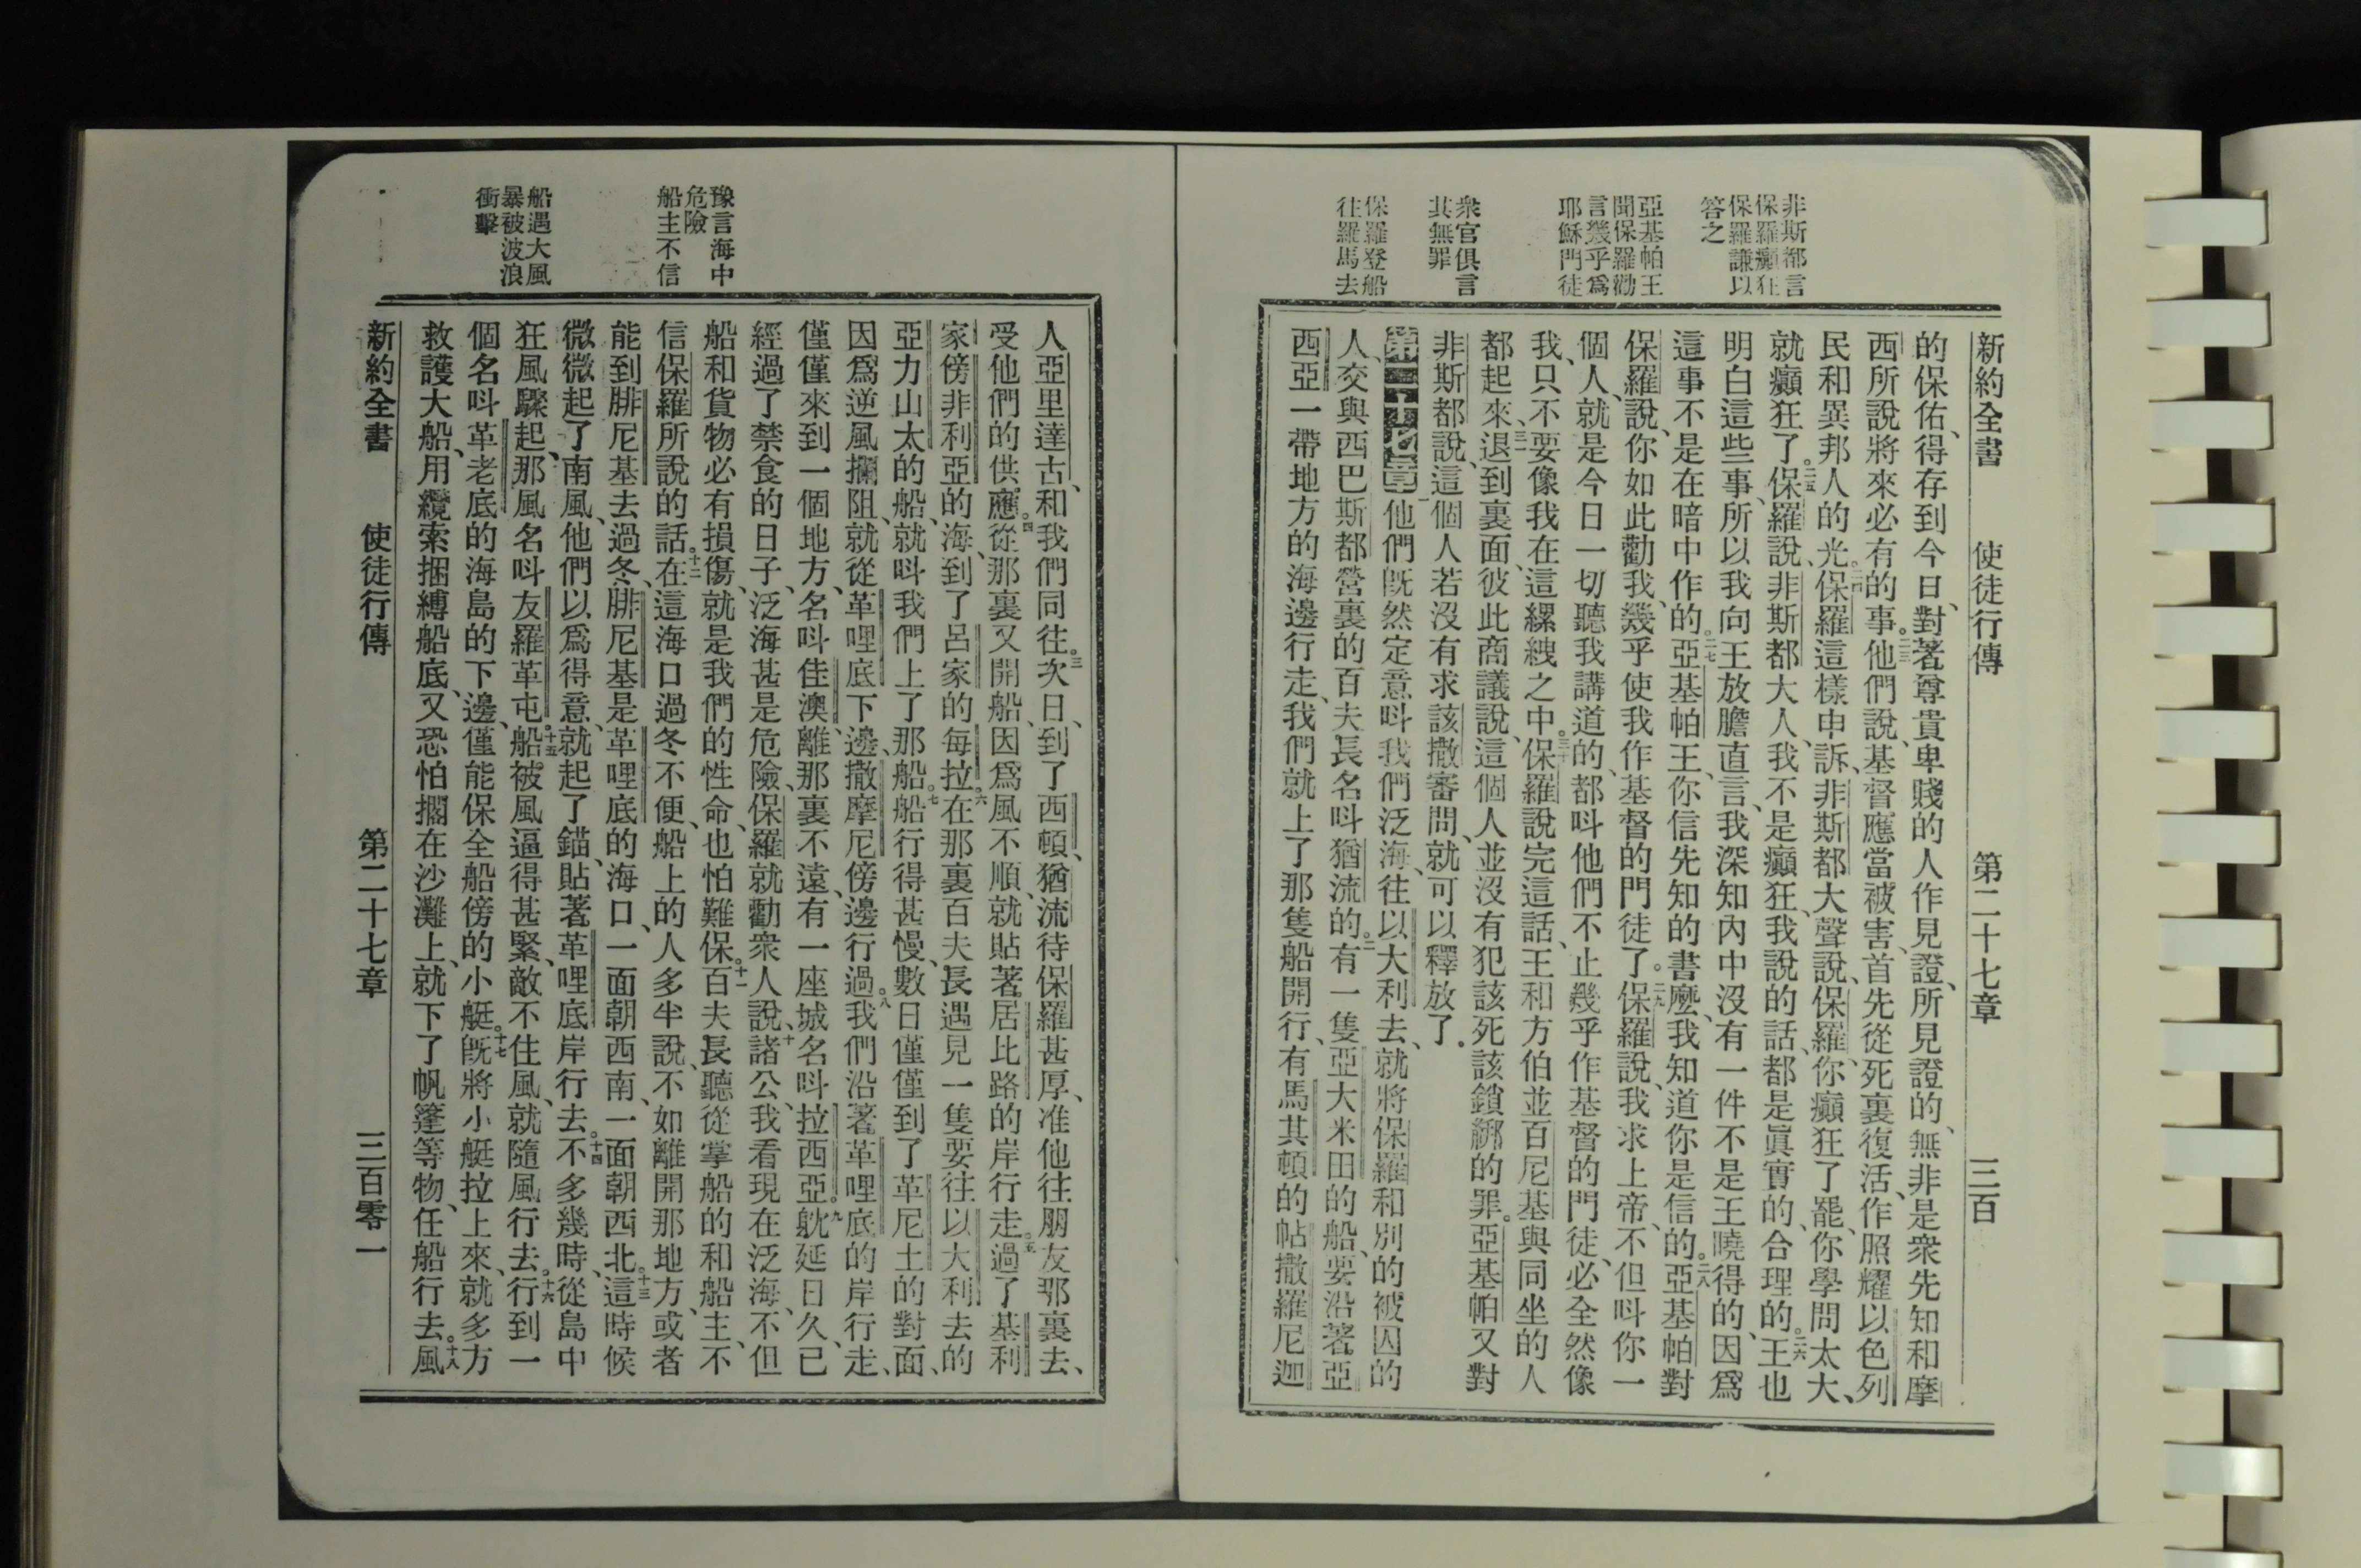 非斯都言
保羅癲狂
保羅謙以
答之
亞基帕王
聞保羅勸
言幾乎爲
耶穌門徒
衆官俱言
其無罪
保羅登船
往羅馬去
新約全書 使徒行傳 第二十七章 三百
的保佑、得存到今日、對著尊貴卑賤的人作見證、所見證的、無非是衆先知和摩
西所說將來必有的事。二三他們說、基督應當被害、首先從死裏復活、作照耀以色列
民和異邦人的光。二四保羅這樣申訴、非斯都大聲說、保羅、你癲狂了罷、你學問太大、
就癲狂了。二五保羅說、非斯都大人、我不是癲狂、我說的話、都是眞實的、合理的。二六王也
明白這些事、所以我向王放膽直言、我深知內中沒有一件不是王曉得的、因爲
這事不是在暗中作的。二七亞基帕王、你信先知的書麼、我知道你是信的。二八亞基帕對
保羅說、你如此勸我、幾乎使我作基督的門徒了。二九保羅說、我求上帝、不但呌你一
個人、就是今日一切聽我講道的、都呌他們不止幾乎作基督的門徒、必全然像
我、只不要像我在這縲絏之中。三十保羅說完這話、王和方伯並百尼基與同坐的人
都起來、三一退到裏面、彼此商議說、這個人並沒有犯該死該鎖綁的罪。亞基帕又對
非斯都說、這個人若沒有求該撒審問、就可以釋放了.
第二十七章一他們旣然定意呌我們泛海、往以大利去、就將保羅和別的被囚的
人、交與西巴斯都營裏的百夫長名呌猶流的。二有一隻亞大米田的船、要沿著亞
西亞一帶地方的海邊行走、我們就上了那隻船開行、有馬其頓的帖撒羅尼迦
豫言海中
危險
船主不信
船遇大風
暴被波浪
衝擊
人亞里達古、和我們同往。三次日、到了西頓、猶流待保羅甚厚、准他往朋友那裏去、
受他們的供應。四從那裏又開船、因爲風不順、就貼著居比路的岸行走。五過了基利
家傍非利亞的海、到了呂家的每拉。六在那裏百夫長遇見一隻要往以大利去的
亞力山太的船、就呌我們上了那船。七船行得甚慢、數日僅僅到了革尼土的對面、
因爲逆風攔阻、就從革哩底下邊、撒摩尼傍邊行過。八我們沿著革哩底的岸行走、
僅僅來到一個地方、名呌佳澳、離那裏不遠、有一座城名呌拉西亞。九躭延日久、已
經過了禁食的日子、泛海甚是危險、保羅就勸衆人說、十諸公、我看現在泛海、不但
船和貨物必有損傷、就是我們的性命、也怕難保。十一百夫長聽從掌船的和船主、不
信保羅所說的話。十二在這海口過冬不便、船上的人多半說、不如離開那地方、或者
能到腓尼基去過冬、腓尼基是革哩底的海口、一面朝西南、一面朝西北。十三這時候
微微起了南風、他們以爲得意、就起了錨、貼著革哩底岸行去。十四不多幾時、從島中
狂風驟起、那風名呌友羅革屯。十五船被風逼得甚緊、敵不住風、就隨風行去。十六行到一
個名呌革老底的海島的下邊、僅能保全船傍的小艇。十七旣將小艇拉上來、就多方
救護大船、用纜索捆縛船底、又恐怕擱在沙灘上、就下了帆篷等物、任船行去。十八風
新約全書 使徒行傳 第二十七章 三百零一